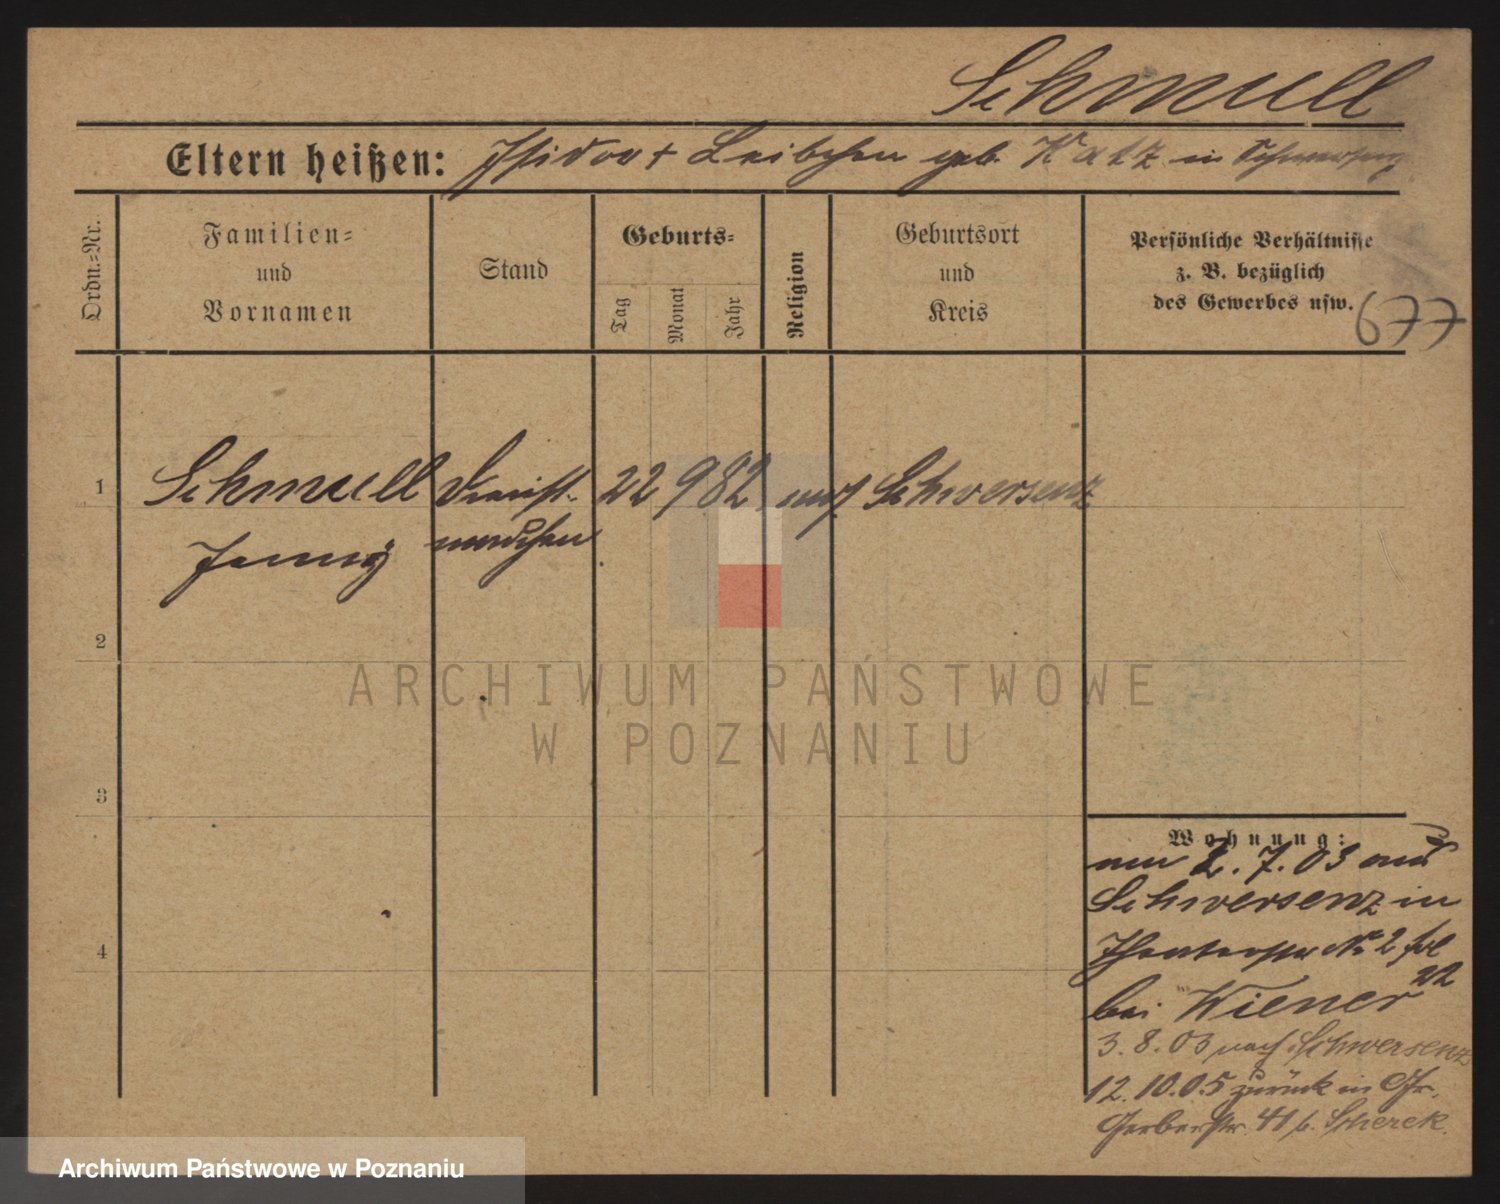 Schmull
Eltern heißen: Isidor + Leibchen geb. Katz in Schwersenz
Ordn.-Nr.
Familien- und Vornamen
Stand
Geburts-
Tag
Monat
Jahr
Religion
Geburtsort und Kreis
Persönliche Verhältnisse
z. B. bezüglich
des Gewerbes usw.
677
1
Schmull Dienst- 22 9 82 Schwersenz
Jenny mädchen
2
3
4
Wohnung:
am 2. 7. 03 aus
Schwersenz in
Theaterstr No 2
bei Wiener
22
3. 8. 03 nach Schwersenz
12. 10. 05 zurück in Gr.
Gerberstr. 41 b. Scherek
ARCHIWUM PAŃSTWOWE
W POZNANIU
Archiwum Państwowe w Poznaniu